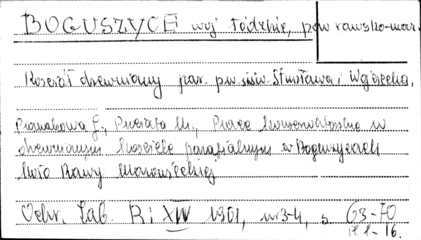 BOGUSZYCE woj łódzkie, pow rawsko-maz.
Kościół drewniany par. p.w. św. Stanisława i Wojciecha,
J., M., Prace konserwatorskie w
drewnianym kościele parafialnym w Boguszycach
koło Rawy Mazowieckiej
Ochr. Zab. R: XIV 1961, nr 3-4, s. 63-70
il 1-16.